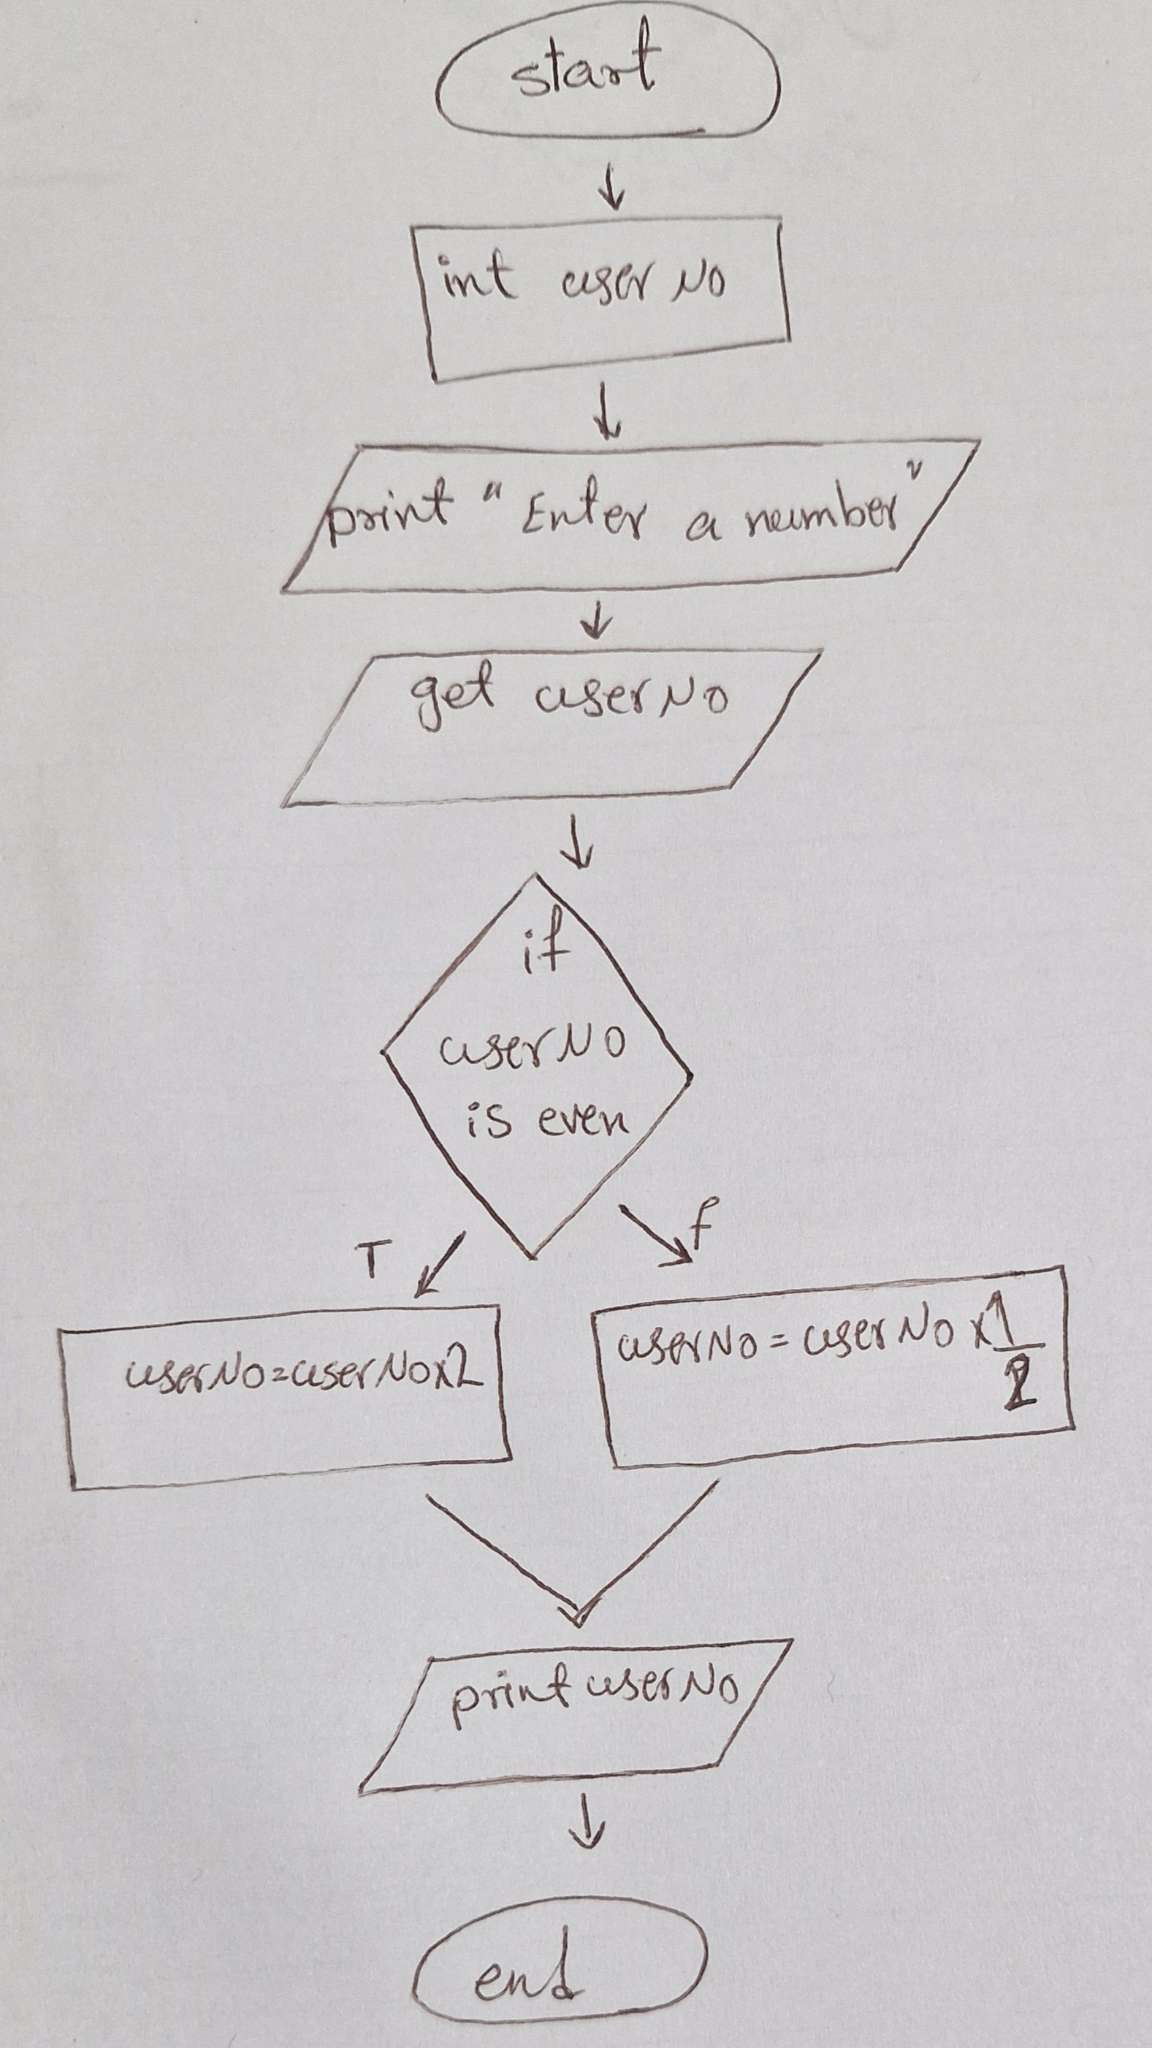 start
int userNo
print "Enter a number"
get userNo
if
userNo
is even
T
f
userNo=userNox2
userNo=userNo x 1/2
print userNo
end